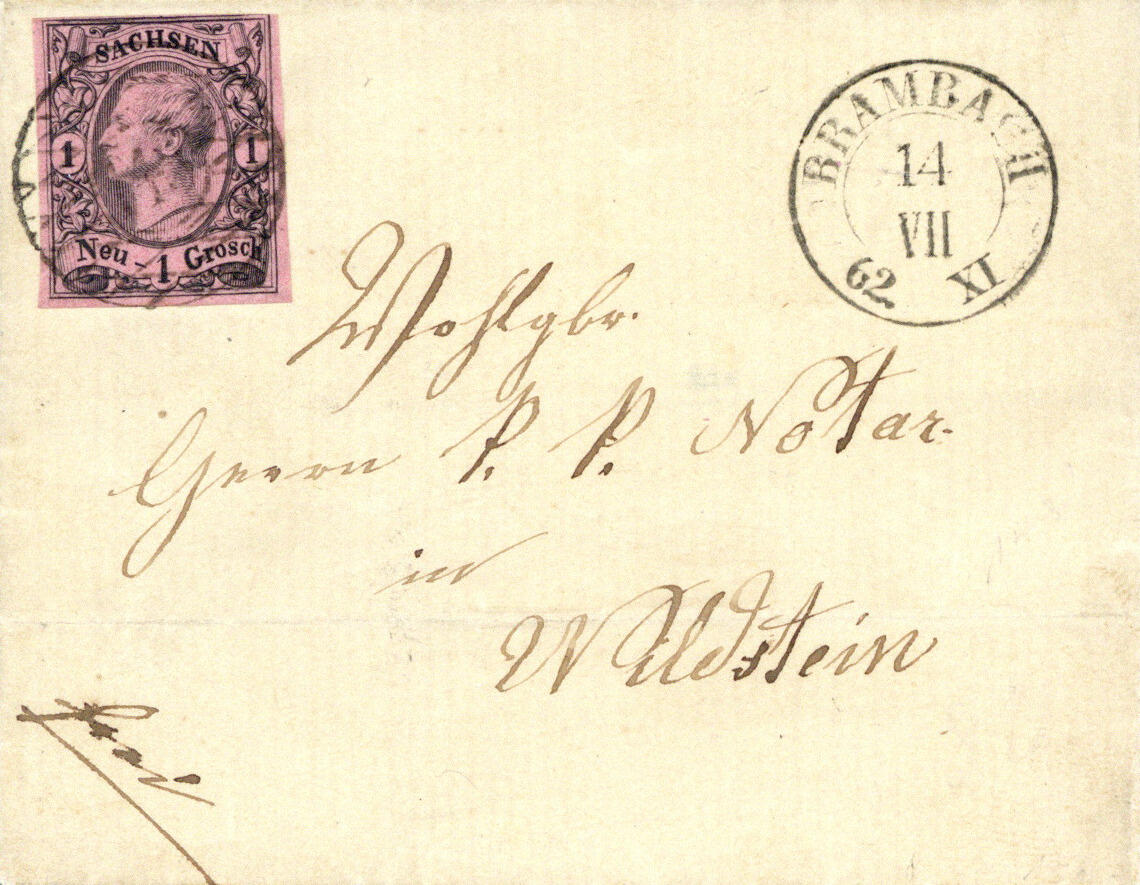 SACHSEN
1 1
Neu - 1 Grosch
BRAMBACH
14
VII
62. XI
Wohlgbr.
Herrn P. P. Notar.
in
Wildstein